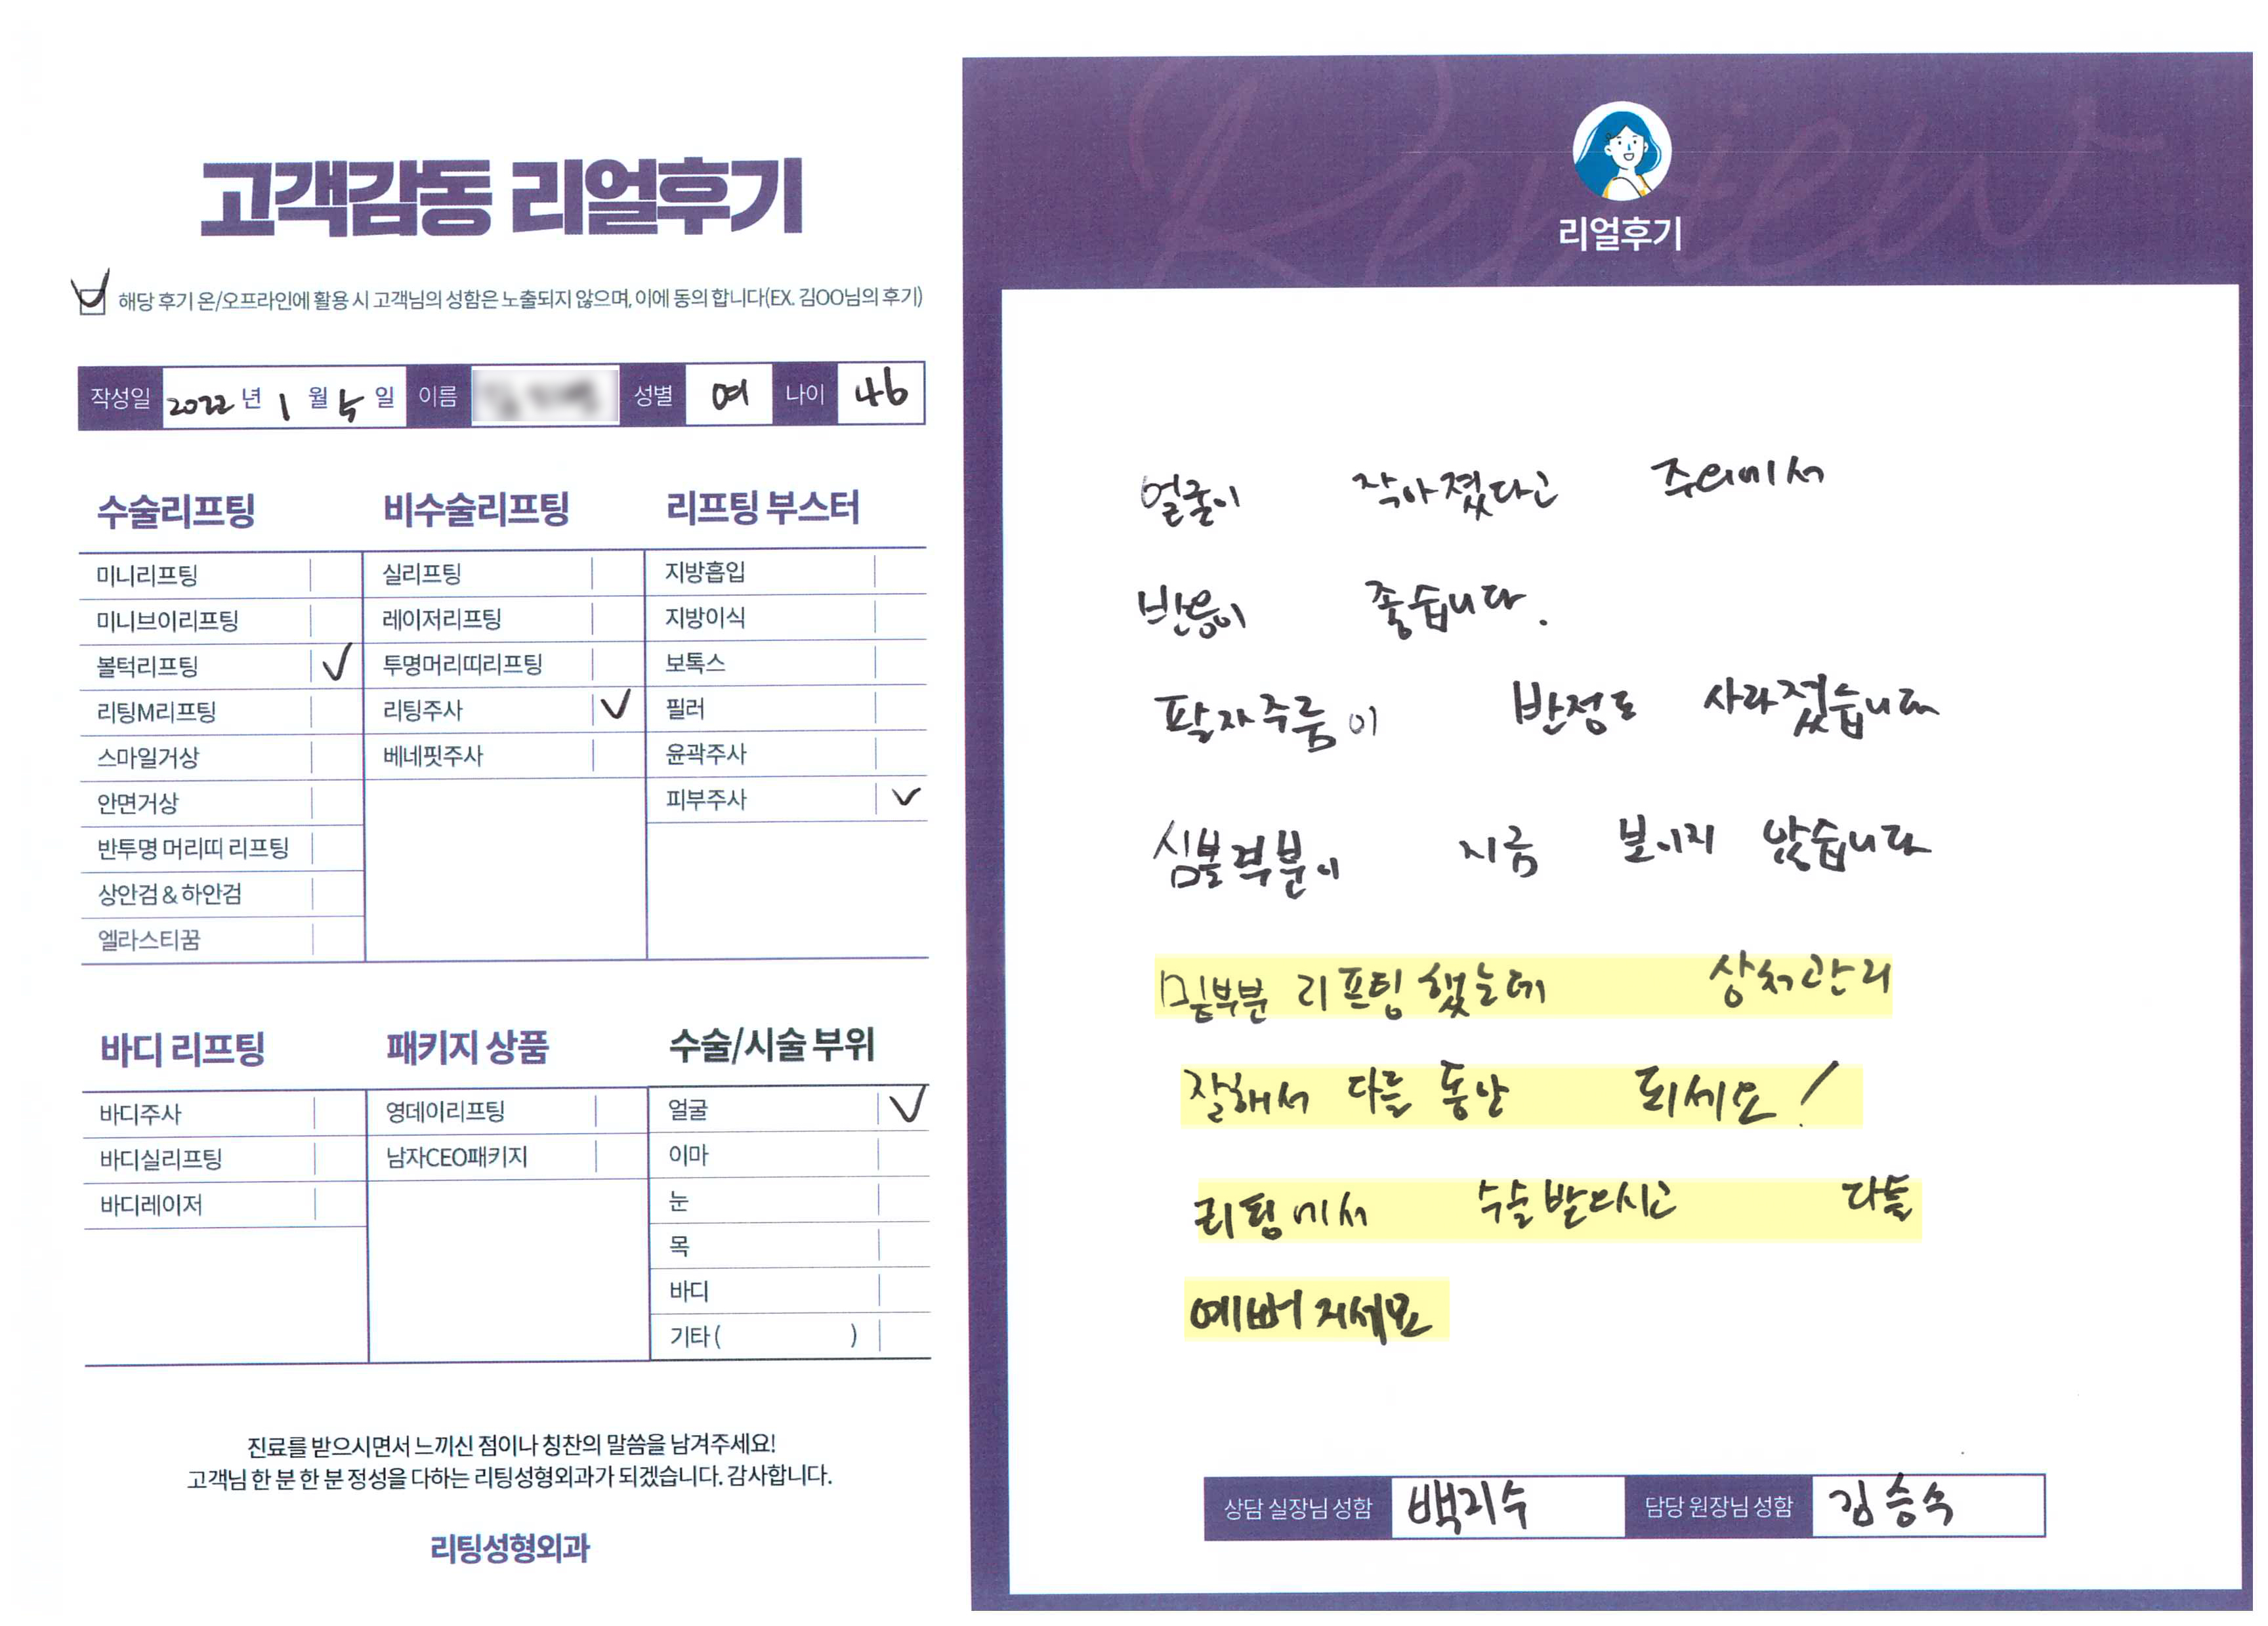 고객감동 리얼후기
해당 후기 온/오프라인에 활용 시 고객님의 성함은 노출되지 않으며, 이에 동의 합니다(EX. 김OO님의 후기)
작성일 2022 년 1 월 5 일 이름 성별 여 나이 46
수술리프팅
미니리프팅
미니브이리프팅
볼턱리프팅
리팅M리프팅
스마일거상
안면거상
반투명 머리띠 리프팅
상안검 & 하안검
엘라스티꿈
비수술리프팅
실리프팅
레이저리프팅
투명머리띠리프팅
리팅주사
베네핏주사
리프팅 부스터
지방흡입
지방이식
보톡스
필러
윤곽주사
피부주사
바디 리프팅
바디주사
바디실리프팅
바디레이저
패키지 상품
영데이리프팅
남자CEO패키지
수술/시술 부위
얼굴
이마
눈
목
바디
기타 ( )
진료를 받으시면서 느끼신 점이나 칭찬의 말씀을 남겨주세요!
고객님 한 분 한 분 정성을 다하는 리팅성형외과가 되겠습니다. 감사합니다.
리팅성형외과
Review
리얼후기
얼굴이 작아졌다고 주위에서
반응이 좋습니다.
팔자주름이 반정도 사라졌습니다
심불부분이 지금 보이지 않습니다
밑부분 리프팅 했는데 상처관리
잘해서 다들 동안 되세요!
리팅에서 수술받으시고 다들
예뻐지세요
상담 실장님 성함 백지수 담당 원장님 성함 김승수